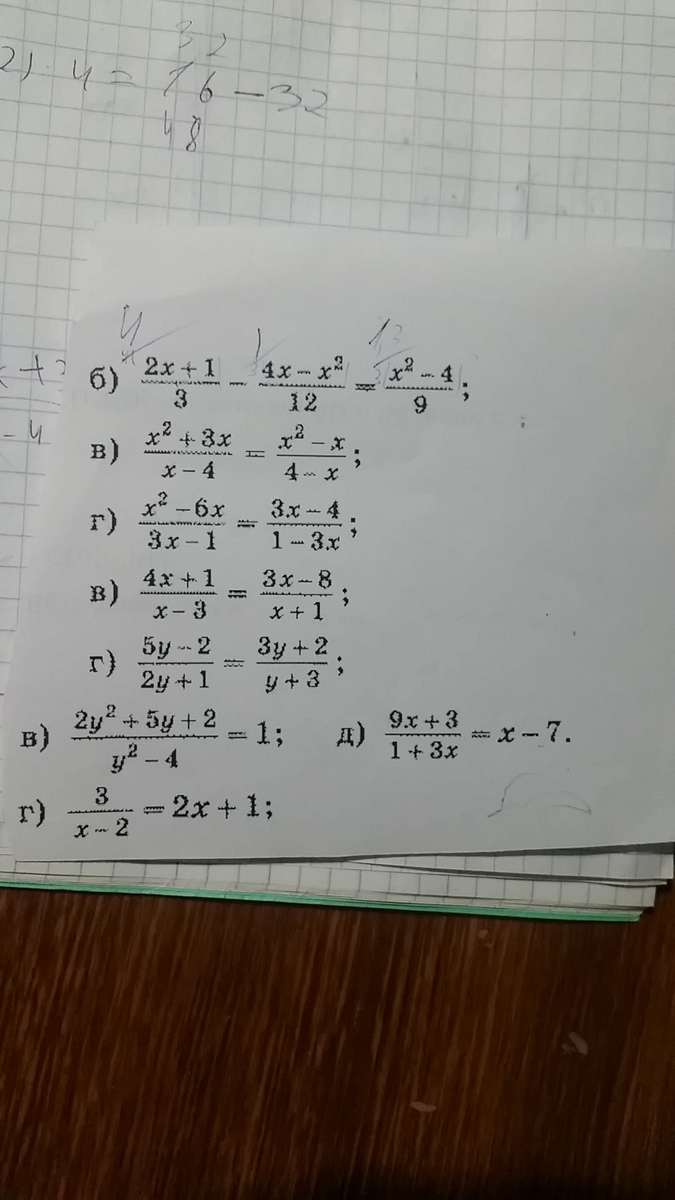 32
2) y = 16 - 32
48
4 1 1,3
б) (2x + 1)/3 - (4x - x²)/12 = (x² - 4)/9;
- 4
в) (x² + 3x)/(x - 4) = (x² - x)/(4 - x);
г) (x² - 6x)/(3x - 1) = (3x - 4)/(1 - 3x);
в) (4x + 1)/(x - 3) = (3x - 8)/(x + 1);
г) (5y - 2)/(2y + 1) = (3y + 2)/(y + 3);
в) (2y² + 5y + 2)/(y² - 4) = 1; д) (9x + 3)/(1 + 3x) = x - 7.
г) 3/(x - 2) = 2x + 1;